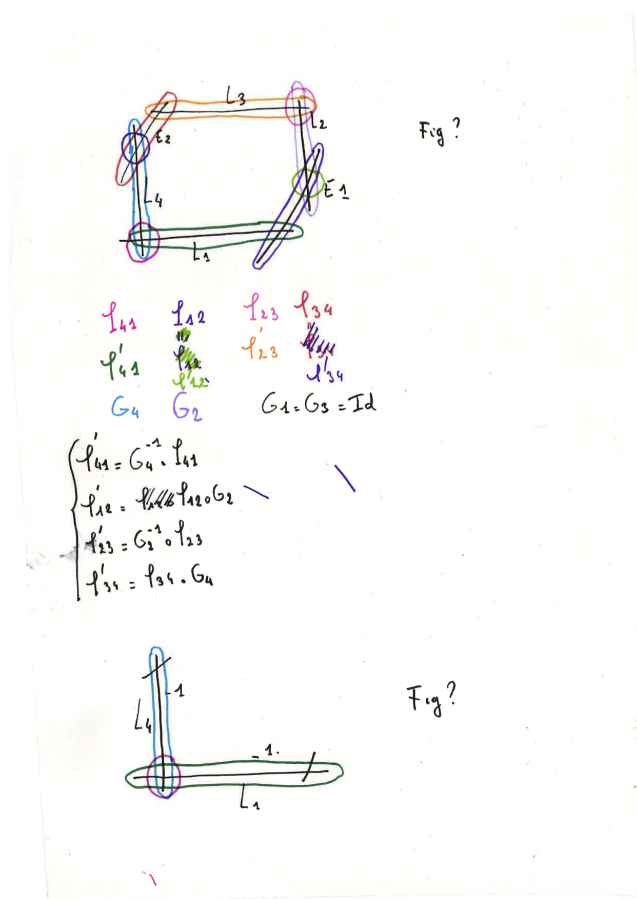 L3
L2
Fig?
E2
L4
E1
L1
φ41 φ12 φ23 φ34
φ'41 φ'12 φ'23 φ'34
G4 G2 G1=G3=Id
φ'41 = G4^-1 ∘ φ41
φ'12 = φ12 ∘ G2
φ'23 = G2^-1 ∘ φ23
φ'34 = φ34 ∘ G4
-1
L4
Fig?
-1.
L1